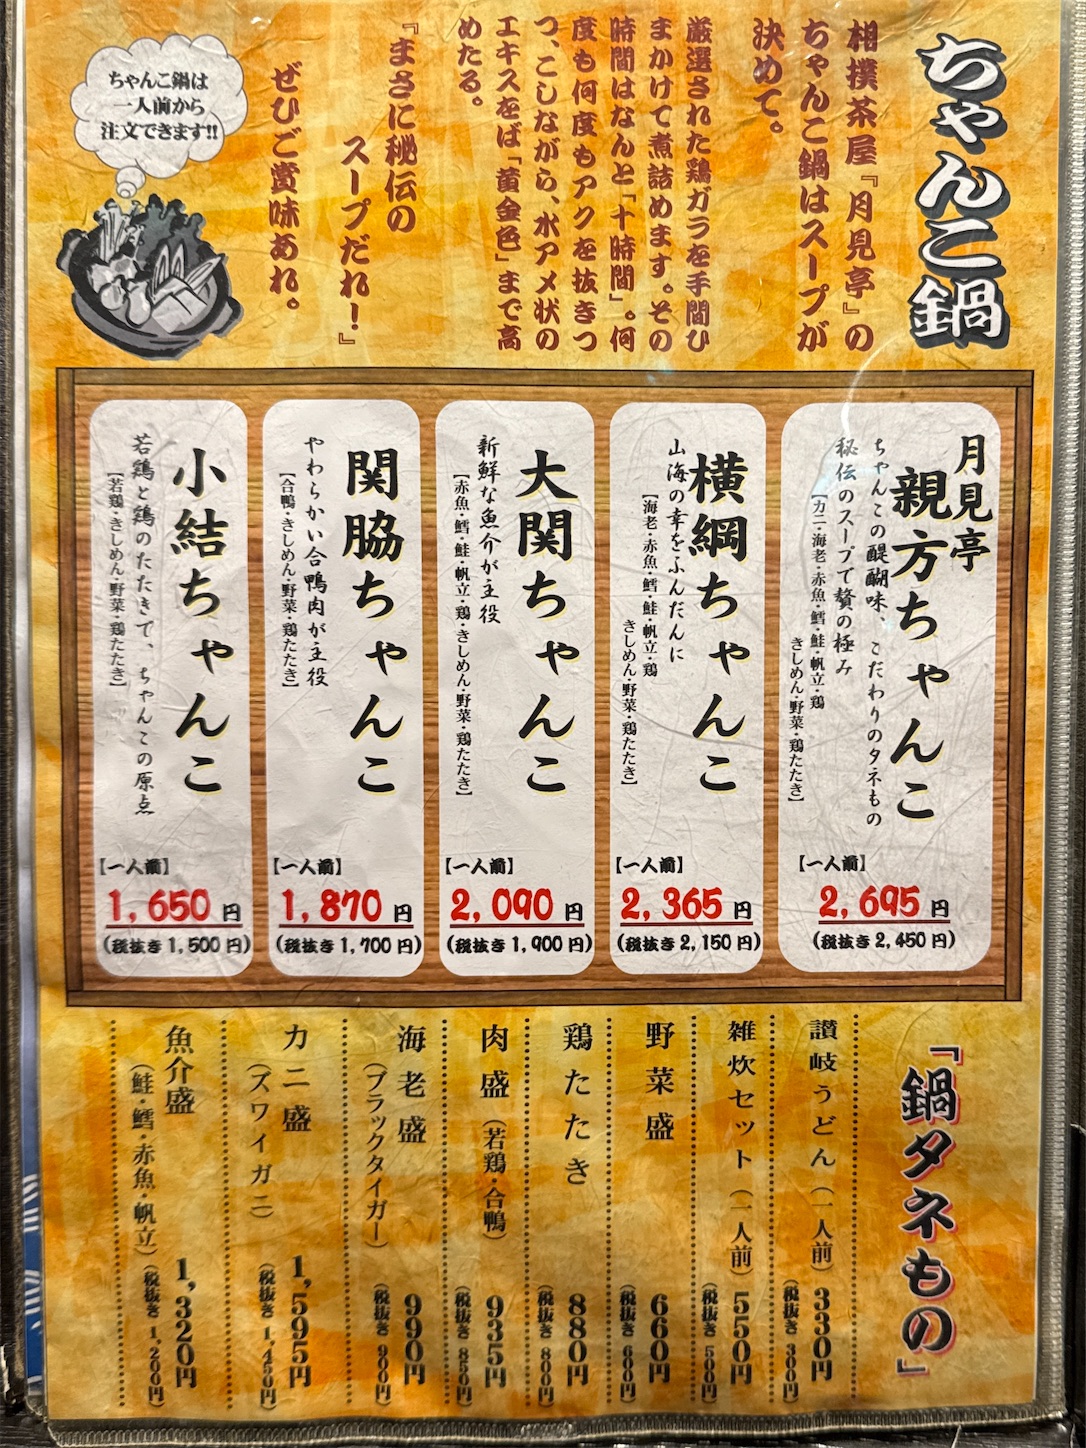 ちゃんこ鍋
相撲茶屋『月見亭』の
ちゃんこ鍋はスープが
決めて。
厳選された鶏ガラを手間ひ
まかけて煮詰めます。その
時間はなんと「十時間」。何
度も何度もアクを抜きつ
つ、こしながら、水アメ状の
エキスをば「黄金色」まで高
めたる。
『まさに秘伝の
スープだれ！』
ぜひご賞味あれ。
ちゃんこ鍋は
一人前から
注文できます!!
月見亭
親方ちゃんこ
ちゃんこの醍醐味、こだわりのタネもの
秘伝のスープで贅の極み
【カニ・海老・赤魚・鱈・鮭・帆立・鶏
きしめん・野菜・鶏たたき】
【一人前】
2,695 円
(税抜き 2,450 円)
横綱ちゃんこ
山海の幸をふんだんに
【海老・赤魚・鱈・鮭・帆立・鶏
きしめん・野菜・鶏たたき】
【一人前】
2,365 円
(税抜き 2,150 円)
大関ちゃんこ
新鮮な魚介が主役
【赤魚・鱈・鮭・帆立・鶏・きしめん・野菜・鶏たたき】
【一人前】
2,090 円
(税抜き 1,900 円)
関脇ちゃんこ
やわらかい合鴨肉が主役
【合鴨・きしめん・野菜・鶏たたき】
【一人前】
1,870 円
(税抜き 1,700 円)
小結ちゃんこ
若鶏と鶏のたたきで、ちゃんこの原点
【若鶏・きしめん・野菜・鶏たたき】
【一人前】
1,650 円
(税抜き 1,500 円)
『鍋タネもの』
讃岐うどん（一人前） 330円
(税抜き 300円)
雑炊セット（一人前） 550円
(税抜き 500円)
野菜盛 660円
(税抜き 600円)
鶏たたき 880円
(税抜き 800円)
肉盛（若鶏・合鴨） 935円
(税抜き 850円)
海老盛 990円
（ブラックタイガー） (税抜き 900円)
カニ盛 1,595円
（ズワイガニ） (税抜き 1,450円)
魚介盛 1,320円
（鮭・鱈・赤魚・帆立） (税抜き 1,200円)